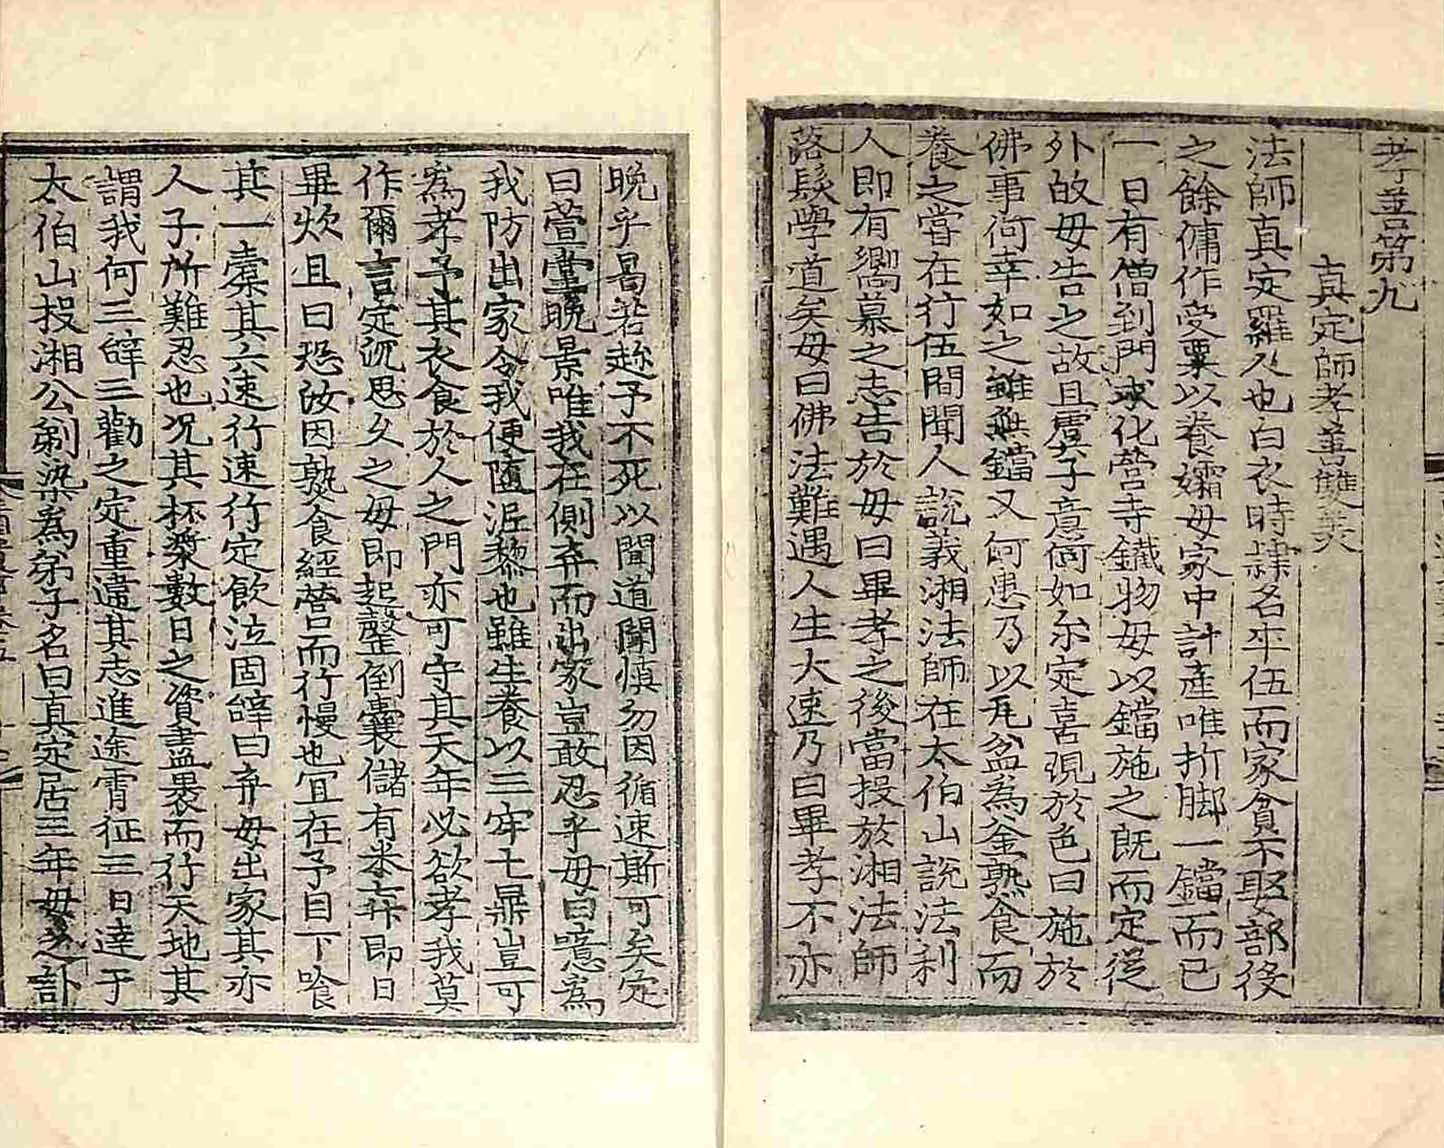 孝善第九
真定師孝善雙美
法師真定羅人也白衣時隷名卒伍而家貧不娶部役
之餘傭作受粟以養孀母家中計產唯折脚一鐺而已
一日有僧到門求化營寺鐵物母以鐺施之既而定從
外故母告之故且虞子意何如尒定喜現於色曰施於
佛事何幸如之雖無鐺又何患乃以瓦盆為釜熟食而
養之甞在行伍間聞人說義湘法師在太伯山說法利
人即有嚮慕之志告於母曰畢孝之後當投於湘法師
落髮學道矣母曰佛法難遇人生大速乃曰畢孝不亦
晚乎曷若趂予不死以聞道聞慎勿因循速斯可矣定
曰萱堂晚景唯我在側弃而出家豈敢忍乎母曰噫為
我防出家令我便墮泥黎也雖生養以三牢七鼎豈可
為孝予其衣食於人之門亦可守其天年必欲孝我莫
作爾言定沉思久之母即起罄倒囊儲有米七升即日
畢炊且曰恐汝因熟食經營而行慢也宜在予目下喰
其一槖其六速行速行定飮泣固辝曰弃母出家其亦
人子所難忍也况其杯漿數日之資盡褁而行天地其
謂我何三辝三勸之定重違其志進途霄征三日達于
太伯山投湘公剃染為弟子名曰真定居三年母之訃